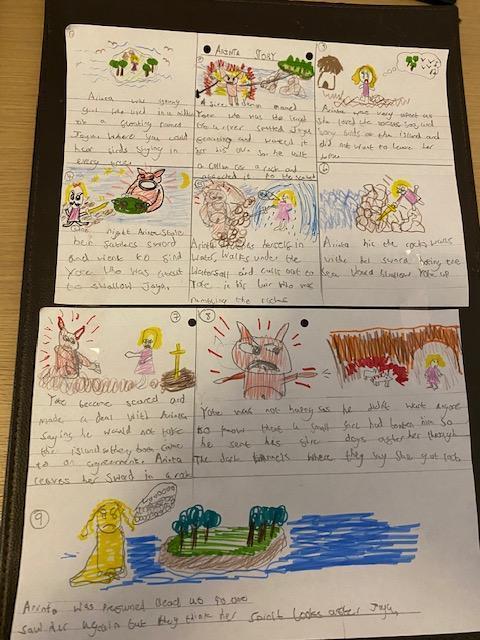 ARINTA STORY
1
Arinta was young
girl who lived in a
on a country named
Jayan where you could
hear birds singing in
every trees
2
A fire demon named
Yore who was the least
spotted Jayan
and wanted it
for his own so he built
a rock and
attached it to the
3
Arinta was very upset as
she loved the
song birds on the island and
did not want to leave her
4
night Arinta stole
her fathers sword
and went to find
Yore who was about
to swallow Jayan.
5
Arinta herself in
Water, walks under the
Waterfall and calls out to
Yore in his lair who was
the rocks
6
Arinta hit the rocks walls
with her sword hoping the
Sea would swallow Yore up
7
Yore became scared and
made a deal with Arinta
saying he would not take
the island so they both came
to an agreement. Arinta
leaves her sword in a rock
8
Yore was not happy as he didn't want anyone
to know that a small girl had beaten him so
he sent his days after her through
The dark tunnels where they say she got lost
9
Arinta was presumed Dead as no one
saw her again but they think her spirit looks after Jayan